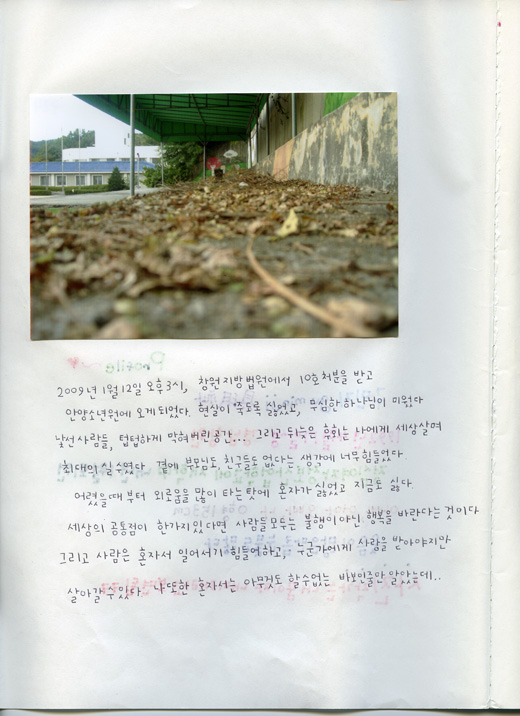 2009년 1월 12일 오후 3시, 창원지방법원에서 10호처분을 받고
안양소년원에 오게되었다. 현실이 죽도록 싫었고, 무심한 하나님이 미웠다
낯선사람들, 텁텁하게 막혀버린 공간... 그리고 뒤늦은 후회는 나에게 세상살며
최대의 실수였다. 곁에 부모님도, 친구들도 없다는 생각에 너무 힘들었다
어렸을때 부터 외로움을 많이 타는 탓에 혼자가 싫었고 지금도 싫다.
세상의 공통점이 한가지 있다면 사람들모두는 불행이 아닌 행복을 바란다는 것이다
그리고 사람은 혼자서 일어서기 힘들어하고, 누군가에게 사랑을 받아야지만
살아갈 수 있다. 나또한 혼자서는 아무것도 할수없는 바보인줄만 알았는데..
Profile